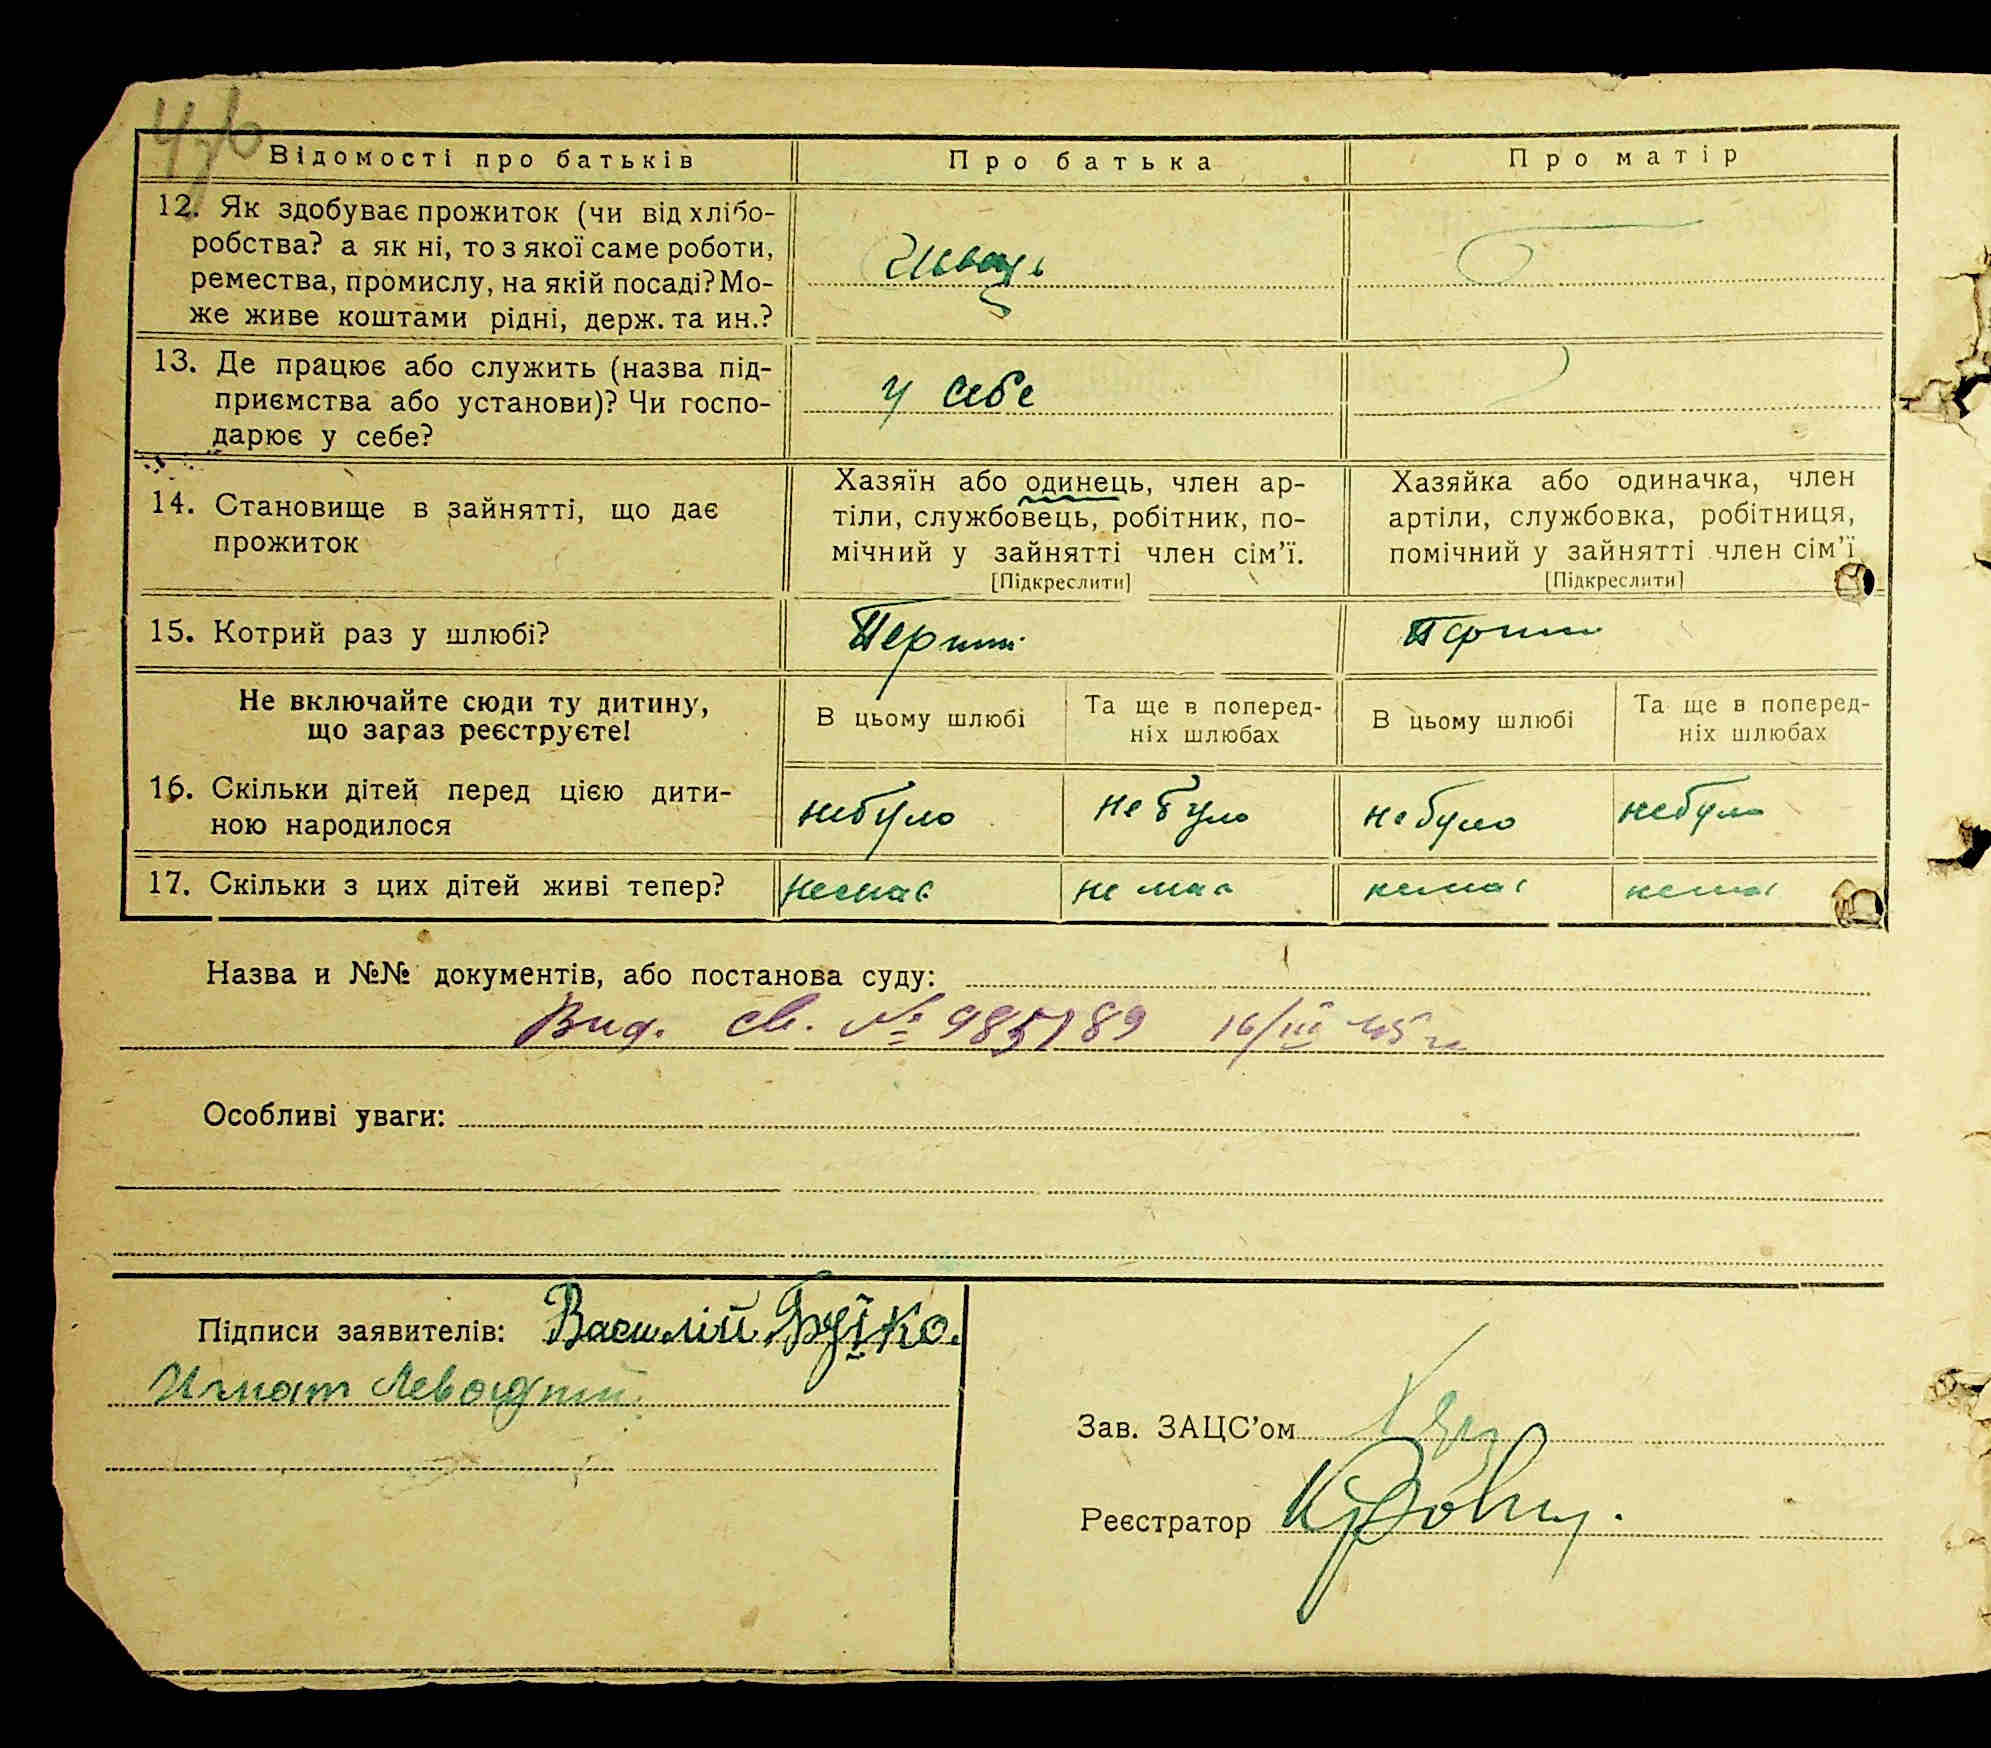 Відомості про батьків
Про батька
Про матір
12. Як здобуває прожиток (чи від хлібо-
робства? а як ні, то з якої саме роботи,
ремества, промислу, на якій посаді? Мо-
же живе коштами рідні, держ. та ин.?
Швець
13. Де працює або служить (назва під-
приємства або установи)? Чи госпо-
дарює у себе?
у себе
14. Становище в зайнятті, що дає
прожиток
Хазяїн або одинець, член ар-
тіли, службовець, робітник, по-
мічний у зайнятті член сім'ї.
[Підкреслити]
Хазяйка або одиначка, член
артіли, службовка, робітниця,
помічний у зайнятті член сім'ї
[Підкреслити]
15. Котрий раз у шлюбі?
Перший
Перший
Не включайте сюди ту дитину,
що зараз реєструєте!
В цьому шлюбі
Та ще в поперед-
ніх шлюбах
В цьому шлюбі
Та ще в поперед-
ніх шлюбах
16. Скільки дітей перед цією дити-
ною народилося
небуло
небуло
небуло
небуло
17. Скільки з цих дітей живі тепер?
немає
немає
немає
немає
Назва и №№ документів, або постанова суду:
Вид. св. № 985189 16/III 45 г.
Особливі уваги:
Підписи заявителів: Василій Буйко.
Игнат
Зав. ЗАЦС'ом
Реєстратор